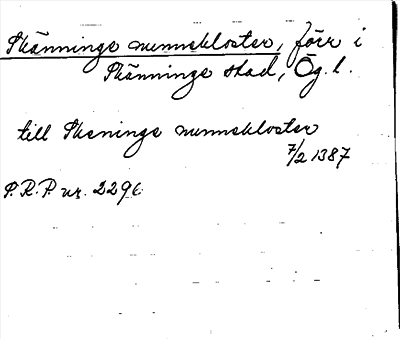 Skänninge nunnekloster, förr i
Skänninge stad, Ög. l.
till Skeninge nunnekloster
7/2 1387
S.R.P. nr. 2296